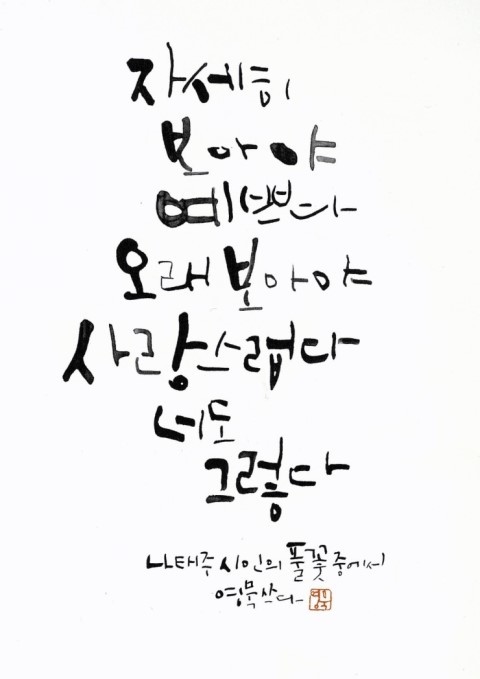 자세히
보아야
예쁘다
오래보아야
사랑스럽다
너도
그렇다
나태주 시인의 풀꽃 중에서
영묵 쓰다